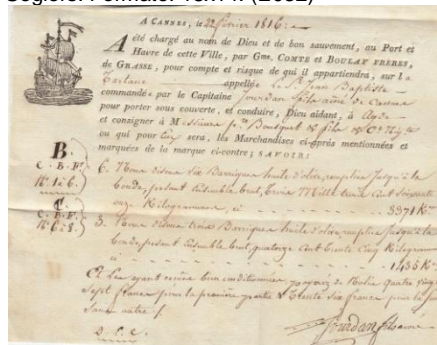 A CANNES, le 22 février 1816
A été chargé au nom de Dieu et de bon sauvement, au Port et
Havre de cette Ville, par Gme. COMTE et BOULAY FRÈRES,
DE GRASSE, pour compte et risque de qui il appartiendra, sur la
Tartane appellée Le St. Jean Baptiste
commandée par le Capitaine Jourdan fils ainé de Cannes
pour porter sous couverte, et conduire, Dieu aidant, à Agde
et consigner à Messieurs Bousquet & fils &
ou qui pour Eux sera, les Marchandises ci-après mentionnées et
marquées de la marque ci-contre; SAVOIR:
B.
C. B. F.
Nº 1 à 6.
6. Nous disons six Barriques huile d'olive remplies jusqu'à la
bonde, pesant Ensemble brut, trois Mille trois Cent soixante
onze Kilogrammes, ci 3371 Ks
C.
C. B. F.
Nº 6 à 8.
3. Nous disons trois Barriques huile d'olive remplies jusqu'à la
bonde, pesant Ensemble brut, quatorze Cent trente Cinq Kilogrammes
ci 1435 Ks
Les ayant reçues bien conditionnées payerez de Nolis quatre vingt
Sept francs pour la première partie & trente six francs pour la
Sans autre
Jourdan